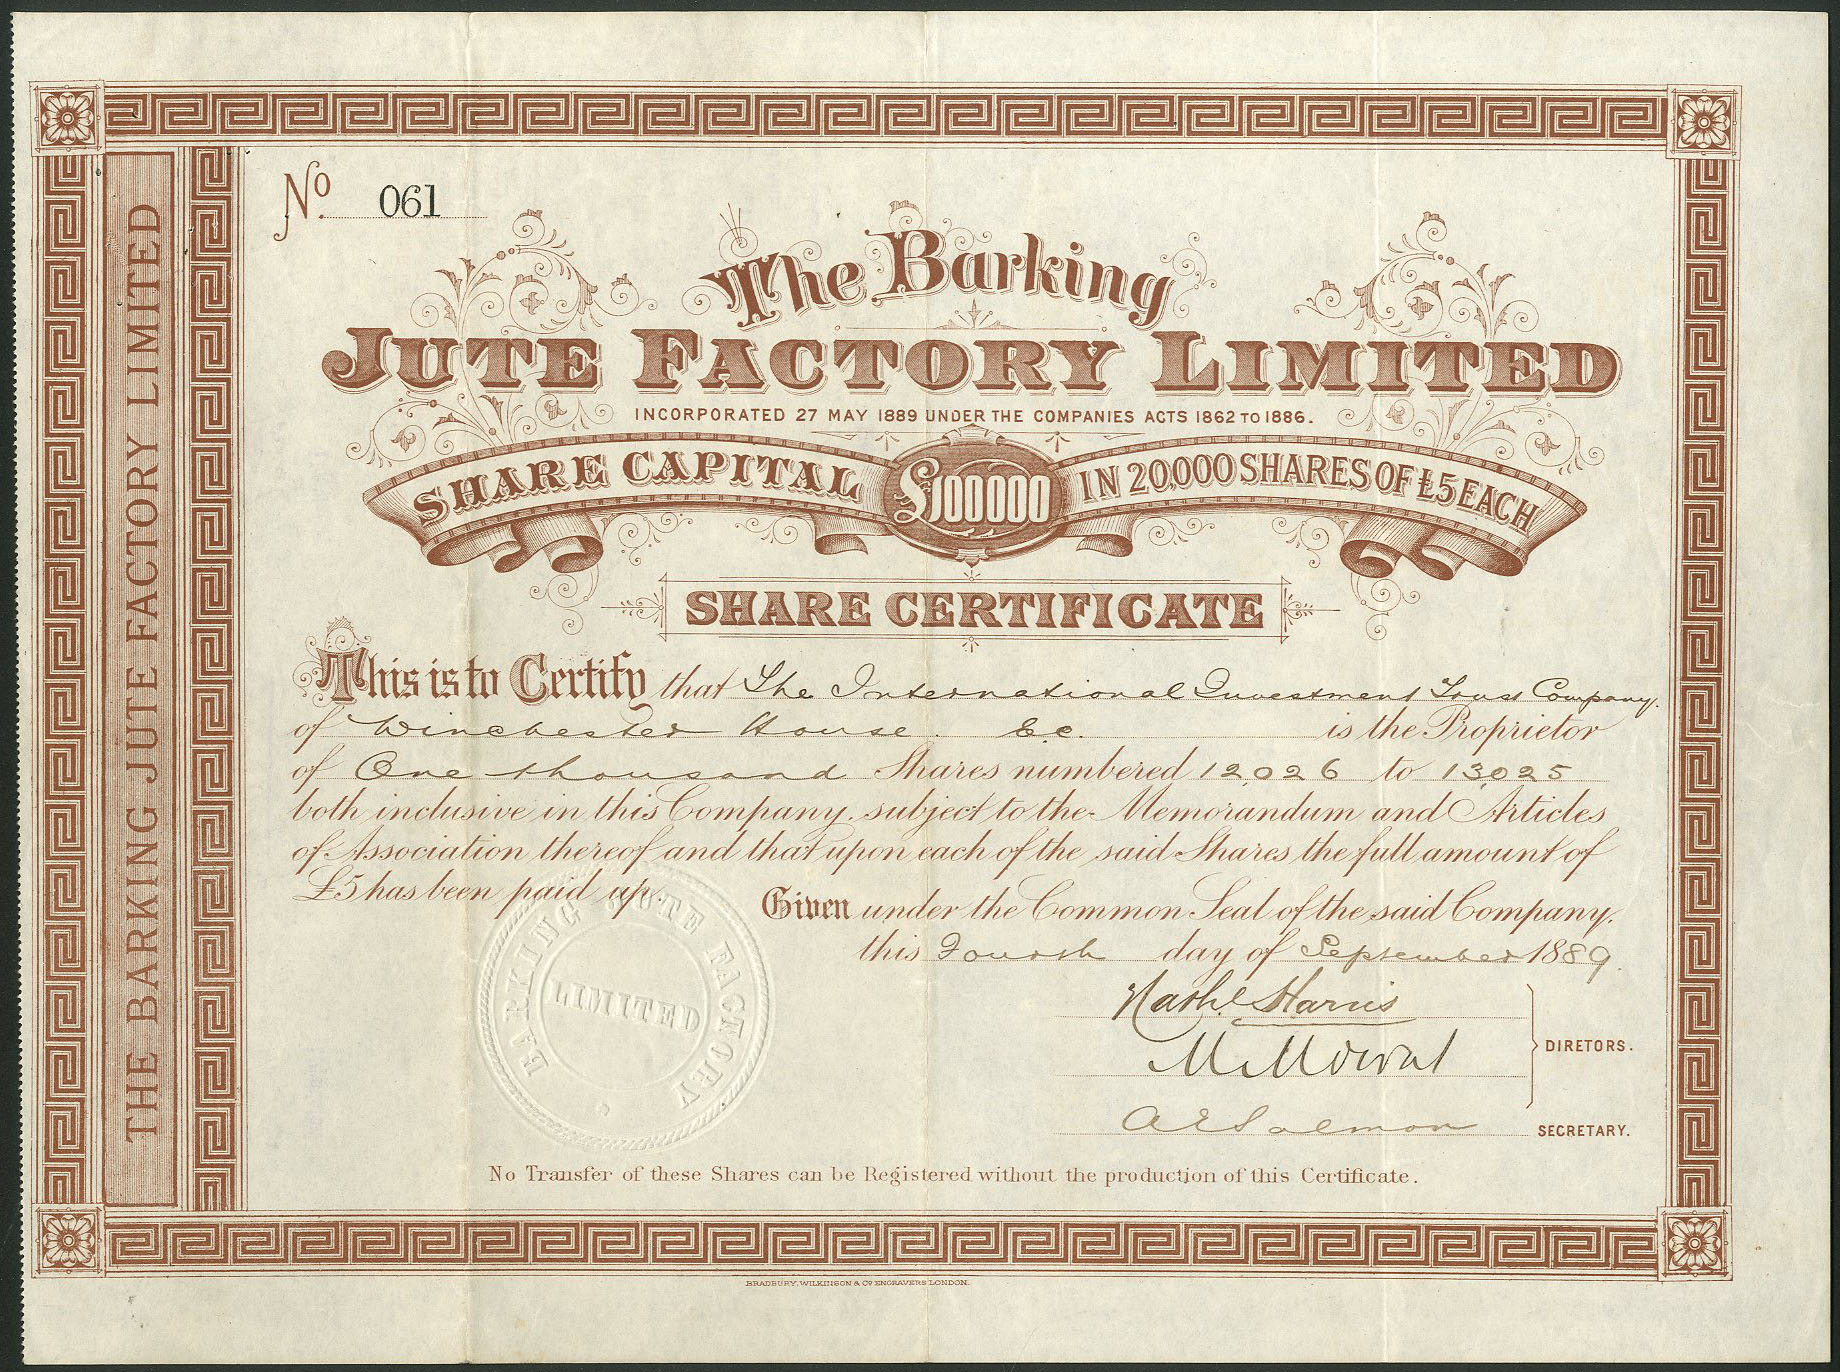 No 061
THE BARKING JUTE FACTORY LIMITED
The Barking
JUTE FACTORY LIMITED
INCORPORATED 27 MAY 1889 UNDER THE COMPANIES ACTS 1862 TO 1886.
SHARE CAPITAL £100000 IN 20,000 SHARES OF £5 EACH
SHARE CERTIFICATE
This is to Certify that The International Investment Trust Company.
of Winchester House. E.C. is the Proprietor
of One thousand Shares numbered 12026 to 13025
both inclusive in this Company, subject to the Memorandum and Articles
of Association thereof and that upon each of the said Shares the full amount of
£5 has been paid up.
Given under the Common Seal of the said Company,
this Fourth day of September 1889.
BARKING JUTE FACTORY
LIMITED
Nathl. Harris
DIRETORS.
A E Salmon SECRETARY.
No Transfer of these Shares can be Registered without the production of this Certificate.
BRADBURY, WILKINSON & Co ENGRAVERS LONDON.